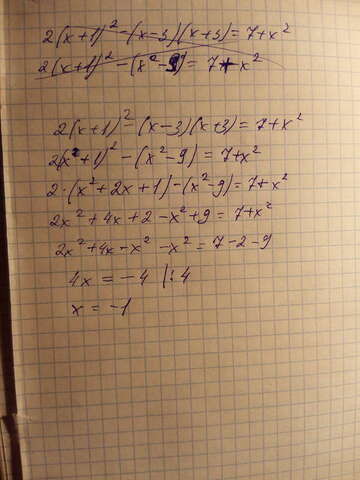 2(x+1)²-(x-3)(x+3)=7+x²
2(x+1)²-(x²-9)=7+x²
2(x+1)²-(x-3)(x+3)=7+x²
2(x²+1)²-(x²-9)=7+x²
2·(x²+2x+1)-(x²-9)=7+x²
2x²+4x+2-x²+9=7+x²
2x²+4x-x²-x²=7-2-9
4x=-4 |:4
x=-1